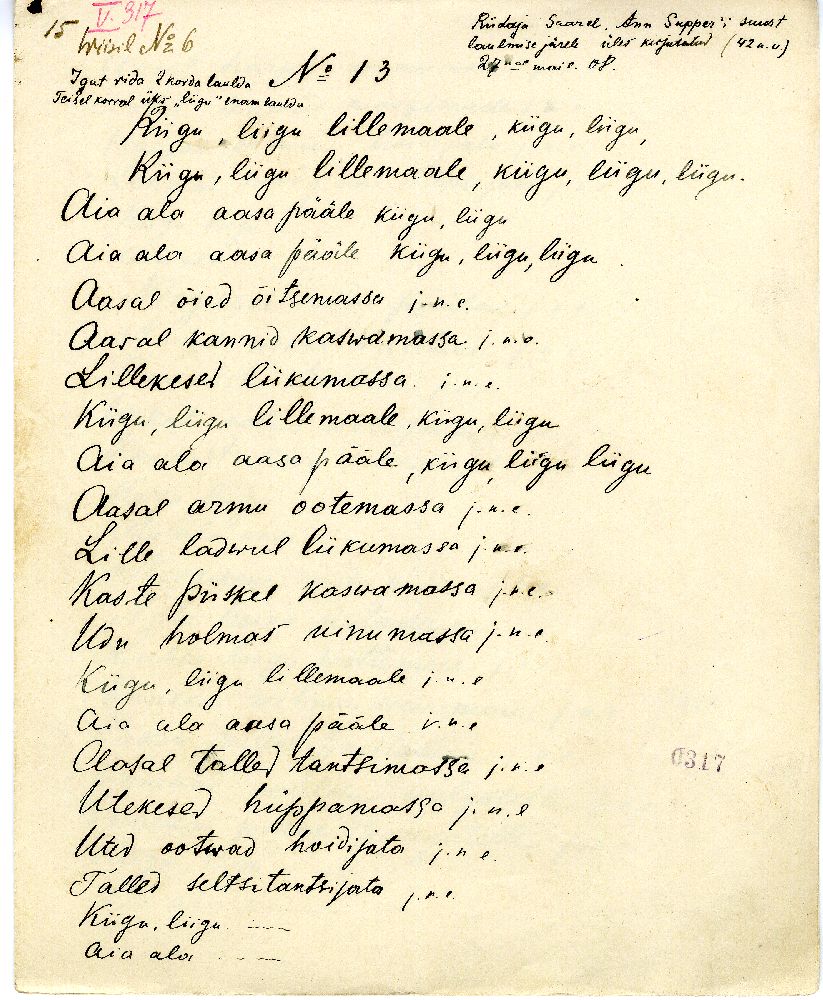 V. 317
15
Wiisil No 6
Riidaja Saarel, Ann Supper'i suust
laulmise järele üles kirjutatud (42 a. v.)
27mal mail. 08.
Igat rida 2 korda laulda
Teisel korral üks „liigu" enam laulda
No 13
Kiigu, liigu lillemaale, kiigu, liigu,
Kiigu, liigu lillemaale, kiigu, liigu, liigu.
Aia ala aasa pääle kiigu, liigu
Aia ala aasa pääle kiigu, liigu, liigu
Aasal õied õitsemassa j.n.e.
Aasal kannid kaswamassa j.n.e.
Lillekesed liikumassa j.n.e.
Kiigu, liigu lillemaale, kiigu, liigu
Aia ala aasa pääle, kiigu, liigu liigu
Aasal armu ootemassa j.n.e.
Lille ladwul liikumassa j.n.e.
Kaste piiskel kaswamassa j.n.e.
Udu holmas uinumassa j.n.e.
Kiigu, liigu lillemaale j.n.e
Aia ala aasa pääle j.n.e
Aasal talled tantsimassa j.n.e
Utekesed hüppamassa j.n.e
Uted ootwad hoidijata j.n.e.
Talled seltsitantsijata j.n.e.
Kiigu, liigu ——
Aia ala ——
0317